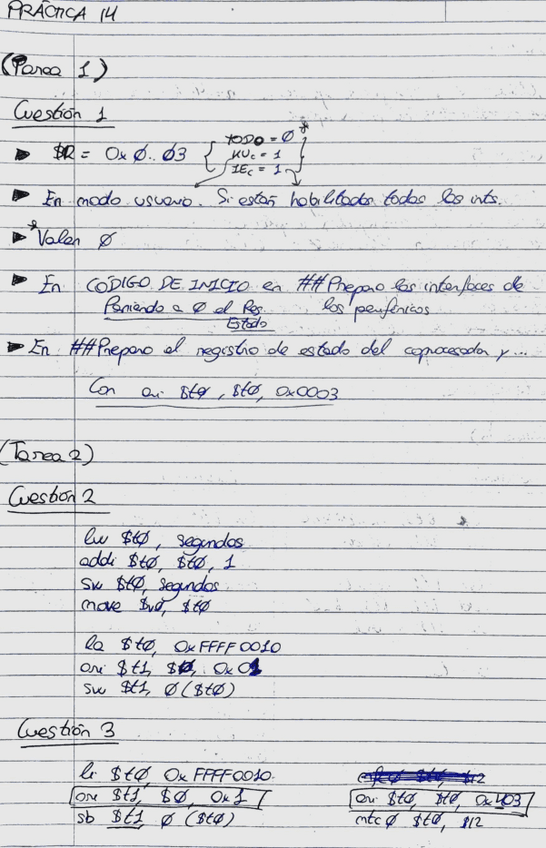 PRÁCTICA 14
(Tarea 1)
Cuestión 1
► $12 = 0x0..03 { TODO = 0 *
KUc = 1
IEc = 1 }
► En modo usuario. Si están habilitadas todas las ints.
► *Valen 0
► En CÓDIGO DE INICIO en ##Preparo las interfaces de
Poniendo a 0 el Reg. los periféricos
Estado
► En ##Preparo el registro de estado del coprocesador y...
Con ori $t0, $t0, 0x0003
(Tarea 2)
Cuestión 2
lw $t0, segundos
addi $t0, $t0, 1
sw $t0, segundos
move $v0, $t0
la $t0, 0xFFFF0010
ori $t1, $0, 0x01
sw $t1, 0($t0)
Cuestión 3
li $t0, 0xFFFF0010
ori $t1, $0, 0x1 ori $t0, $t0, 0x403
sb $t1, 0($t0) mtc0 $t0, $12